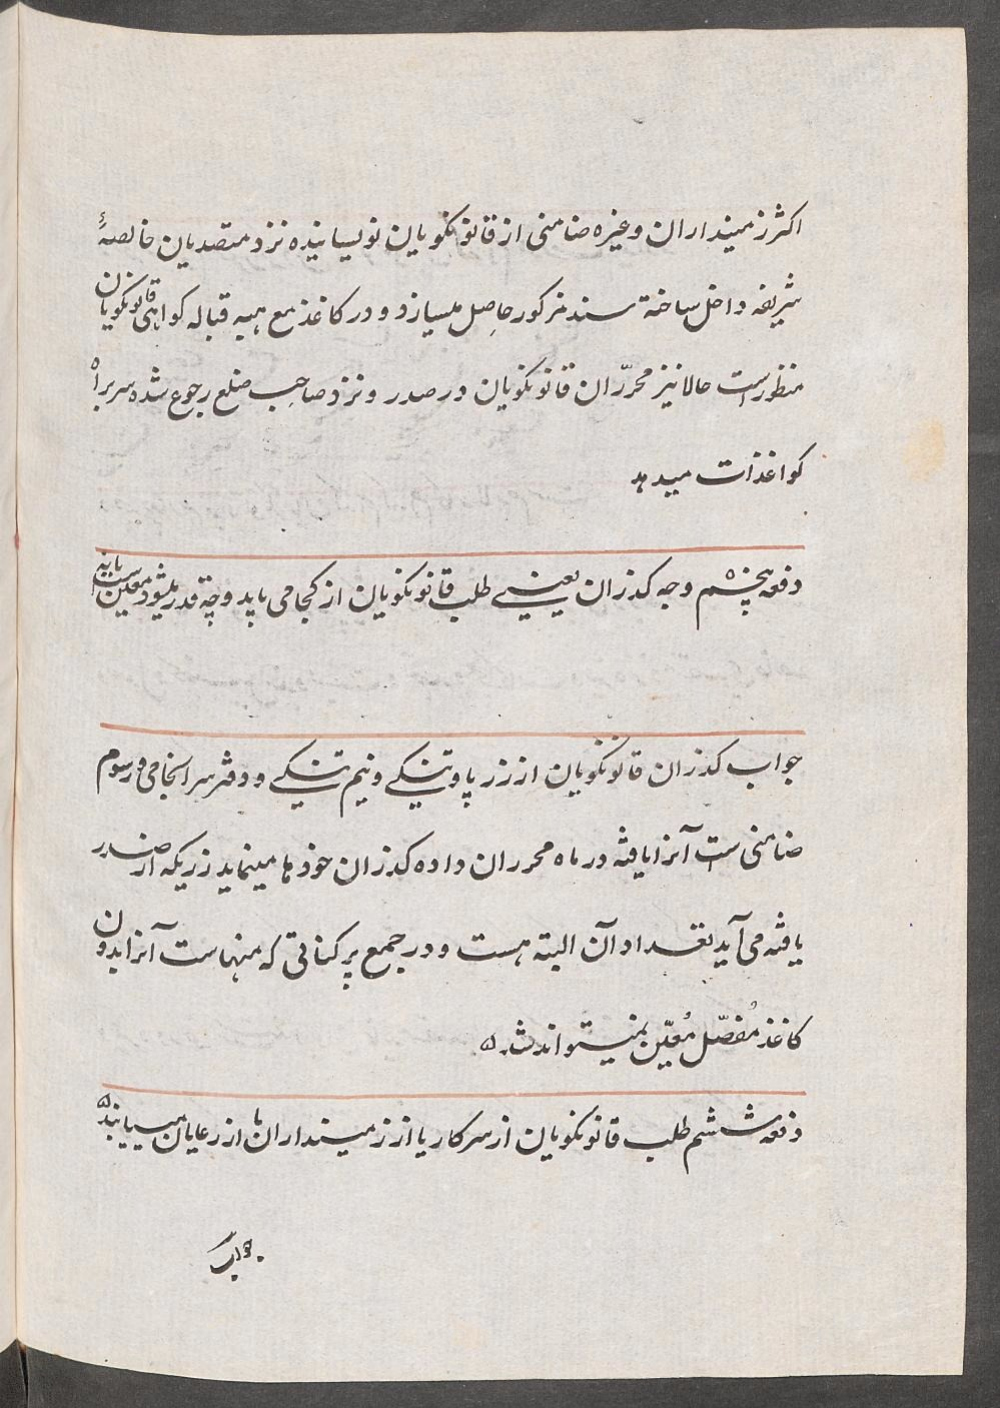 اکثر زمینداران وغیره ضامنی از قانونکویان نویسانیده نزد متصدیان خالصهٔ
شریفه داخل ساخته سند مذکور حاصل میسازد و در کاغذ مع هبه قباله کواهی قانونکویان
منظور است حالا نیز محرّران قانونکویان در صدر و نزد صاحب ضلع رجوع شده سربراه
کواغذات میدهد
دفعه پنجم وجه کذران یعنی طلب قانونکویان از کجا می یابد و چه قدر میشود معین است یا نه
جواب کذران قانونکویان از زر پاوتنکے و نیم تنکے و دفتر سرانجامی و رسوم
ضامنی است آنرا یافته در ماه محرران داده کذران خودها مینماید زریکه از صدر
یافته می آید تعداد آن البته هست و در جمع پرکناتی که منهاست آنرا بدون
کاغذ مُفصّل مُعیّن نمیتواند شد
دفعه ششم طلب قانونکویان از سرکار یا از زمینداران یا از رعایان مییابند
جواب